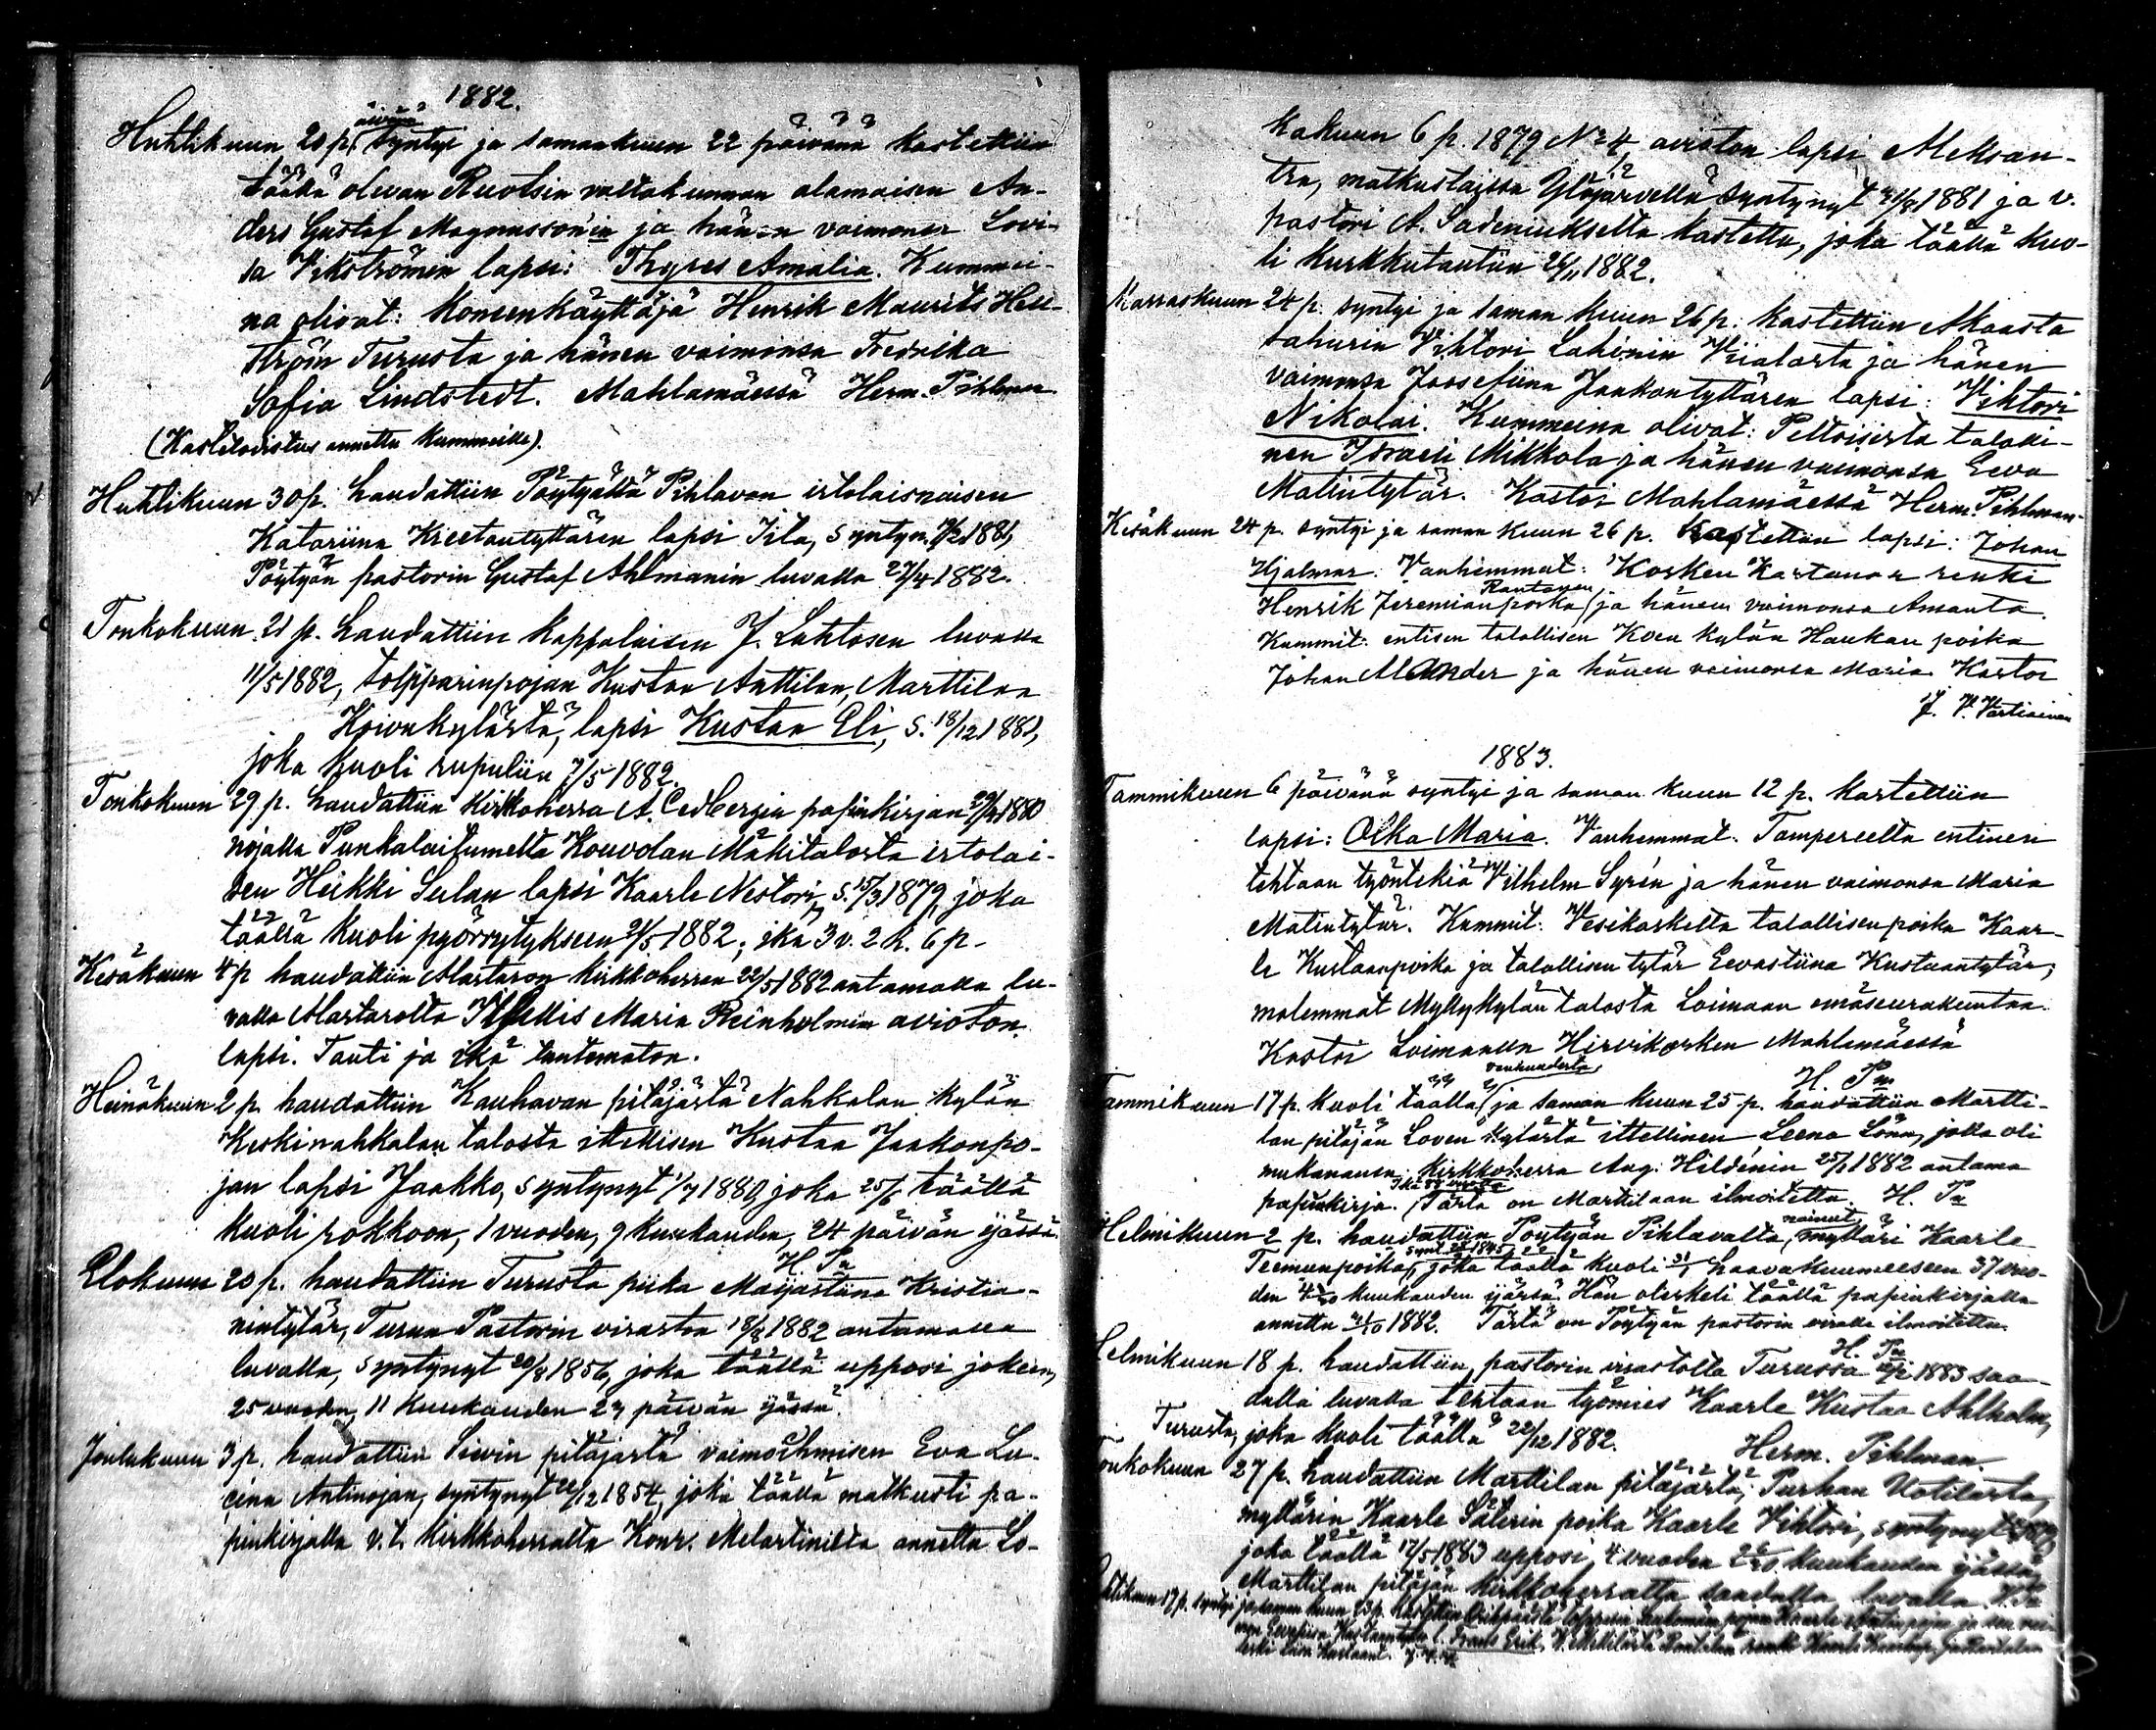 1882.
Huhtikuun 20 p. syntyi ja samankuun 22 päivänä kastettiin
täällä olevan Ruotsin valtakunnan alamaisen An-
ders Gustaf Magnusson'in ja hänen vaimonsa Lovi-
sa Vikströmin lapsi: Thyres Amalia. Kummei-
na olivat: Koneenkäyttäjä Henrik Maurits Hell-
ström Turusta ja hänen vaimonsa Fredrika
Sofia Lindstedt. Mahlamäessä Herm. Pihlman
(Kastetodistus annettu kummeille).
Huhtikuun 30 p. haudattiin Pöytyältä Pihlavan irtolaisnaisen
Katariina Kreetantyttären lapsi Iita, syntyn. 1881,
Pöytyän pastorin Gustaf Ahlmanin luvalla 27/4 1882.
Toukokuun 21 p. haudattiin kappalaisen J. Lahtosen luvalla
11/5 1882, tolpparinpojan Kustaa Anttilan, Marttilan
Koivukylästä, lapsi Kustaa Eli, s. 18/12 1881,
joka kuoli rupuliin 7/5 1882.
Toukokuun 29 p. haudattiin Kirkkoherra A. Cedbergin papinkirjan 1880
nojalla Punkalaitumelta Kouvolan Mäkitalosta irtolai-
sen Heikki Seilan lapsi Kaarle Nestori, s. 15/3 1879, joka
täällä kuoli pyörrytykseen 21/5 1882, ikä 3 v. 2 k. 6 p.
Kesäkuun 4 p haudattiin Alastaron kirkkoherran 22/5 1882 antamalla lu-
valla Alastarolta Itsellis Maria Reinholmin avioton
lapsi. Tauti ja ikä tuntematon.
Heinäkuun 2 p. haudattiin Kauhavan pitäjästä Nahkalan kylän
Keskinahkalan talosta ittellisen Kustaa Jaakonpo-
jan lapsi Jaakko, syntynyt 1/7 1880, joka 25/6 täällä
kuoli rokkoon, 1 vuoden, 9 kuukauden, 24 päivän ijässä.
H. Pn
Elokuun 20 p. haudattiin Turusta piika Maijastiina Kristia-
nintytär, Turun Pastorin viraston 18/8 1882 antamalla
luvalla, syntynyt 20/8 1856, joka täällä upposi jokeen,
25 vuoden 11 kuukauden 27 päivän ijässä.
Joulukuun 3 p. haudattiin Sievin pitäjästä vaimoihmisen Eva Lu-
ciina Antinojan, syntynyt 22/12 1854, joka täällä matkusti pa-
pinkirjalla v.t. kirkkoherralta Konr. Melartinilta annettu Lo-
kakuun 6 p. 1879 No 4, avioton lapsi Aleksan-
tra, matkustajissa Ylöjärvellä syntynyt 1881 ja v.
pastori A. Sadeniukselta kastettu, joka täällä kuo-
li kurkkutautiin 26/11 1882.
Marraskuun 24 p. syntyi ja saman kuun 26 p. kastettiin Akaasta
sahurin Vihtori Lahinin Viialasta ja hänen
vaimonsa Joosefiina Jaakontyttären lapsi: Vihtori
Nikolai. Kummeina olivat: Peltoisista taloki-
nen Israeli Mikkola ja hänen vaimonsa Eeva
Matintytär. Kastoi Mahlamäessä Herm. Pihlman.
Kesäkuun 24 p. syntyi ja saman kuun 26 p. kastettiin lapsi: Johan
Hjalmar. Vanhemmat: Kosken Kartanon renki
Henrik Jeremianpoika Rantanen ja hänen vaimonsa Amanta.
Kummit: entisen talollisen Koen kylän Haukan poika
Johan Alander ja hänen vaimonsa Maria. Kastoi
J. V. Vartiainen
1883.
Tammikuun 6 päivänä syntyi ja saman kuun 12 p. kastettiin
lapsi: Olka Maria. Vanhemmat: Tampereelta entinen
tehtaan työntekiä Vilhelm Syrén ja hänen vaimonsa Maria
Matintytär. Kummit: Vesikoskelta talollisen poika Kaar-
le Kustaanpoika ja talollisen tytär Eevastiina Kustaantytär,
molemmat Myllykylän talosta Loimaan emäseurakuntaa.
Kastoi Loimaan Hirvikosken Mahlamäessä
H. Pn
Tammikuun 17 p. kuoli täällä vanhuudesta ja saman kuun 25 p. haudattiin Martti-
lan pitäjän Loven kylästä ittellinen Leena Lönn, jolla oli
mukanansa kirkkoherra Aug. Hildénin 25/1 1882 antama
papinkirja. Tästä on Marttilaan ilmoitettu. H. Pn
Helmikuun 2 p. haudattiin Pöytyän Pihlavalta, nainut mylläri Kaarle
Teemunpoika, joka täällä kuoli 31/1 haavakuumeeseen 37 vuo-
den kuukauden ijässä. Hän oleskeli täällä papinkirjalla
annettu 1882. Tästä on Pöytyän pastorin viralle ilmoitettu.
H. Pn
Helmikuun 18 p. haudattiin, pastorin virastolta Turussa 1883 saa-
dulla luvalla tehtaan työmies Kaarle Kustaa Ahlholm,
Turusta, joka kuoli täällä 22/12 1882.
Herm. Pihlman.
Toukokuun 27 p. haudattiin Marttilan pitäjästä, Purhan Uotilasta,
myllärin Kaarle Säterin poika Kaarle Vihtori, syntynyt
joka täällä 17/5 1883 upposi, 4 vuoden kuukauden ijässä,
Marttilan pitäjän kirkkoherralta saadulla luvalla. H. Pn
17 p. syntyi ja saman kuun 23 p. kastettiin
Frans Erik.